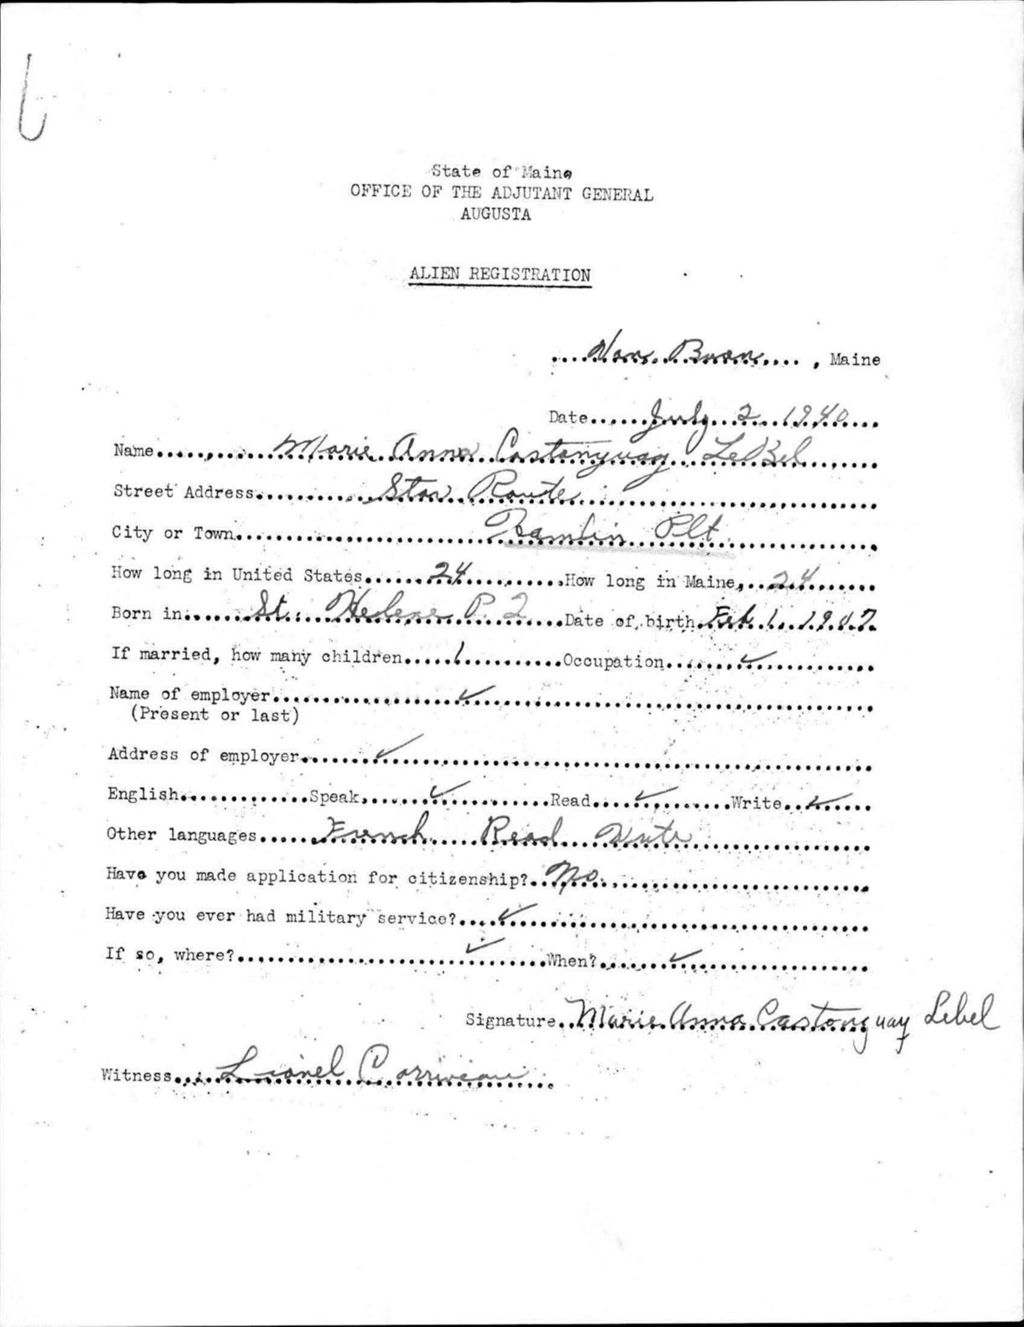 State of Maine
OFFICE OF THE ADJUTANT GENERAL
AUGUSTA
ALIEN REGISTRATION
Van Buren, Maine
Date July 2 1940
Name Marie Anna Castonguay LeBel
Street Address Star Route
City or Town Hamlin Plt.
How long in United States 24 How long in Maine 24
Born in St. Helene P. 2 Date of birth Feb. 1. 1907
If married, how many children 1 Occupation ✓
Name of employer ✓
(Present or last)
Address of employer ✓
English Speak ✓ Read ✓ Write ✓
Other languages French Read Write
Have you made application for citizenship? No.
Have you ever had military service? ✓
If so, where? ✓ When? ✓
Signature Marie Anna Castonguay Lebel
Witness Lionel Corriveau